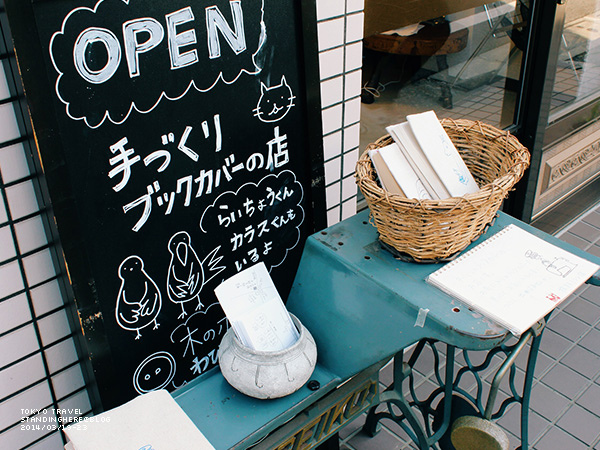 OPEN
手づくり
ブックカバーの店
らいちょうくん
カラスくんも
いるよ
木の
TOKYO TRAVEL
STANDINGHERE@BLOG